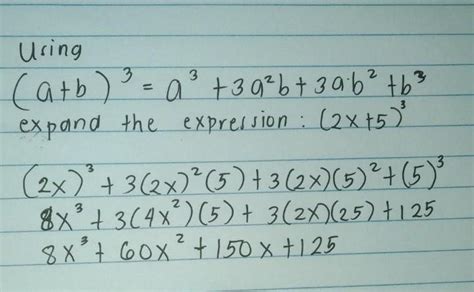 Using
(a+b)³ = a³ + 3a²b + 3a·b² + b³
expand the expression : (2x+5)³
(2x)³ + 3(2x)²(5) + 3(2x)(5)² + (5)³
8x³ + 3(4x²)(5) + 3(2x)(25) + 125
8x³ + 60x² + 150x + 125